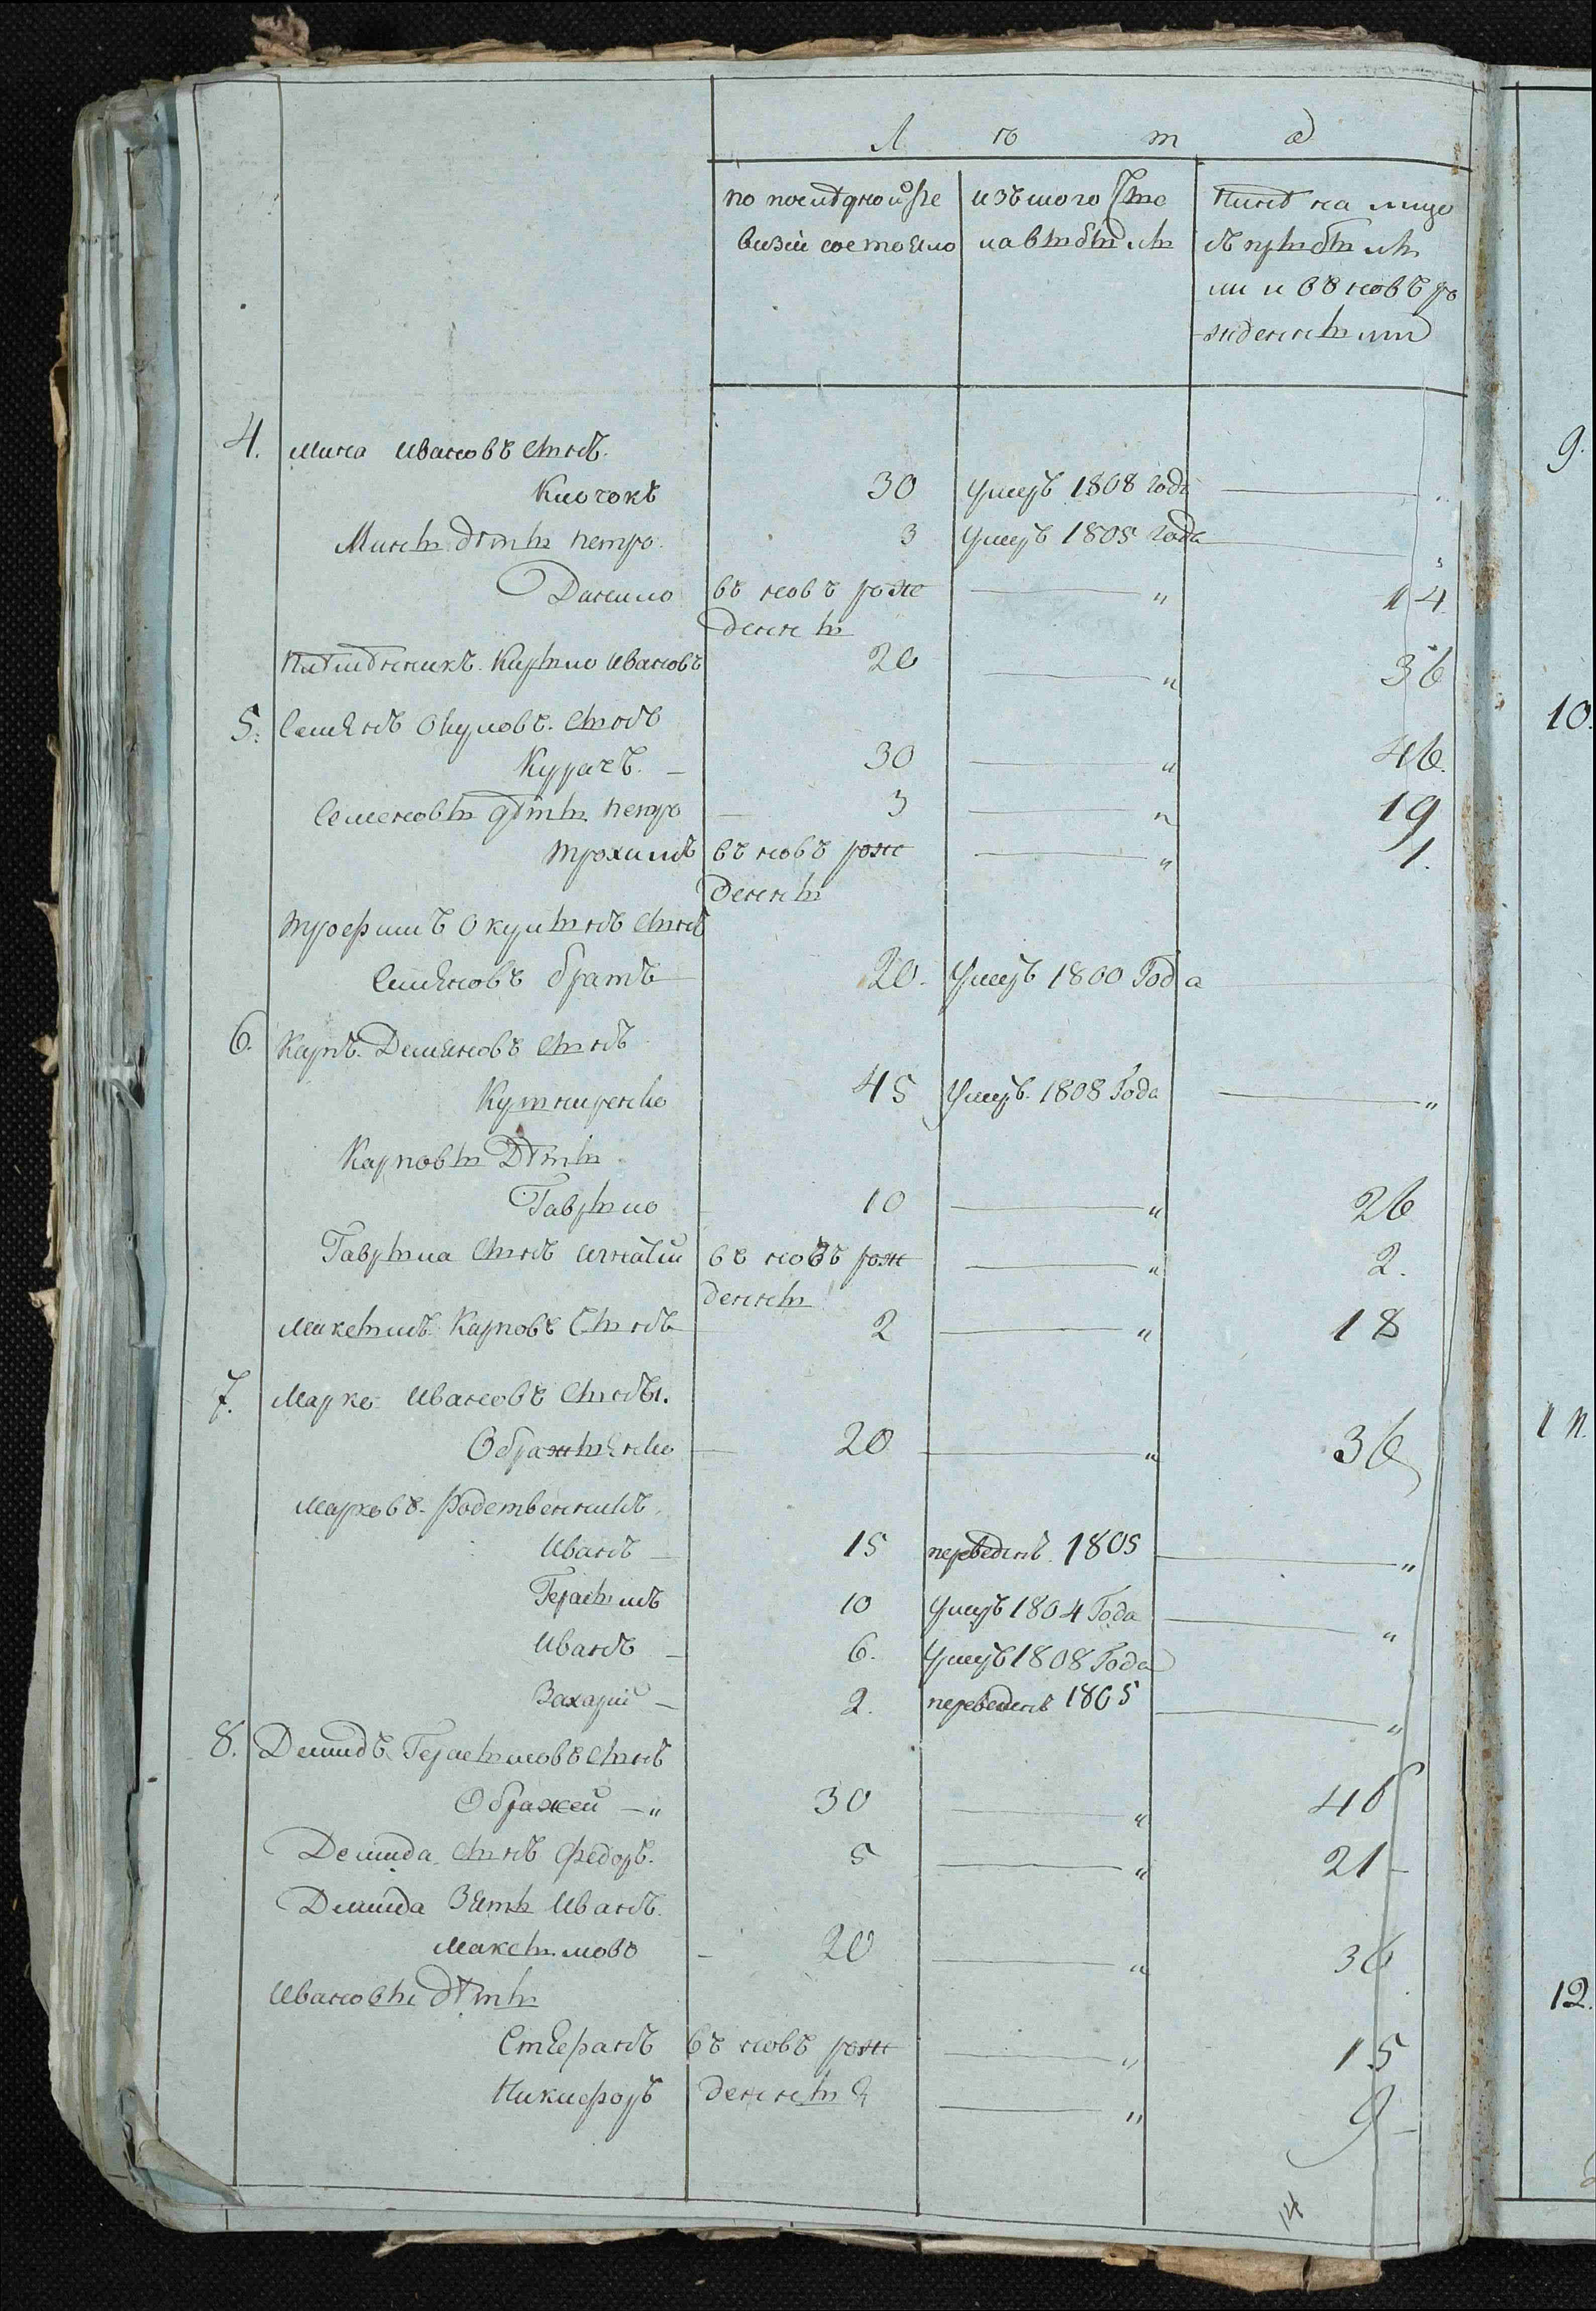 Л ѣ т а
по последной ре
визіи состояло
изъ того числа
выбыли
ныне на лицо
съ прибыли
ми и въ новъ ро
жденными
4. Мина Ивановъ сынъ.
Клочокъ 30 умеръ 1808 года — "
Мины дѣти Петро. 3 умеръ 1805 года — "
Данило въ новъ рож — " 14
денны
племѣнникъ. Кирило Ивановъ 20 — " 36
5. Семенъ Окуловъ. сынъ
Курачъ. — 30 — " 46.
Семеновы дѣти Петро — 3 — " 19
Трохимъ въ новъ рож — " 1.
денны
Трофимъ Окулынъ сынъ
Семеновъ братъ 20. умеръ 1800 Года —
6. Карпъ. Демяновъ сынъ
Кутниренко 45 умеръ. 1808 Года — "
Карповы Дѣти
Гаврило 10 — " 26
Гаврила сынъ Игнатій въ новъ рож — " 2.
денны
Максимъ Карповъ Сынъ 2 — " 18
7. Марко Ивановъ сынъ.
Ображиенко — 20 — " 36
Марковъ Родственникъ.
Иванъ — 15 переведенъ. 1805 — "
Герасимъ 10 умеръ 1804 Года — "
Иванъ — 6. умеръ 1808 Года "
Захарій — 2. переведенъ 1805 — "
8. Демидъ. Герасимовъ сынъ
Ображей — " 30 — " 46
Демида. сынъ Федоръ. 5 — " 21 —
Демида Зять Иванъ.
Максимовъ — 20 — " 36
Ивановы дѣти
Стефанъ въ новъ рож — " 15
Никифоръ денные — " 9 —
14
9.
10.
11.
12.